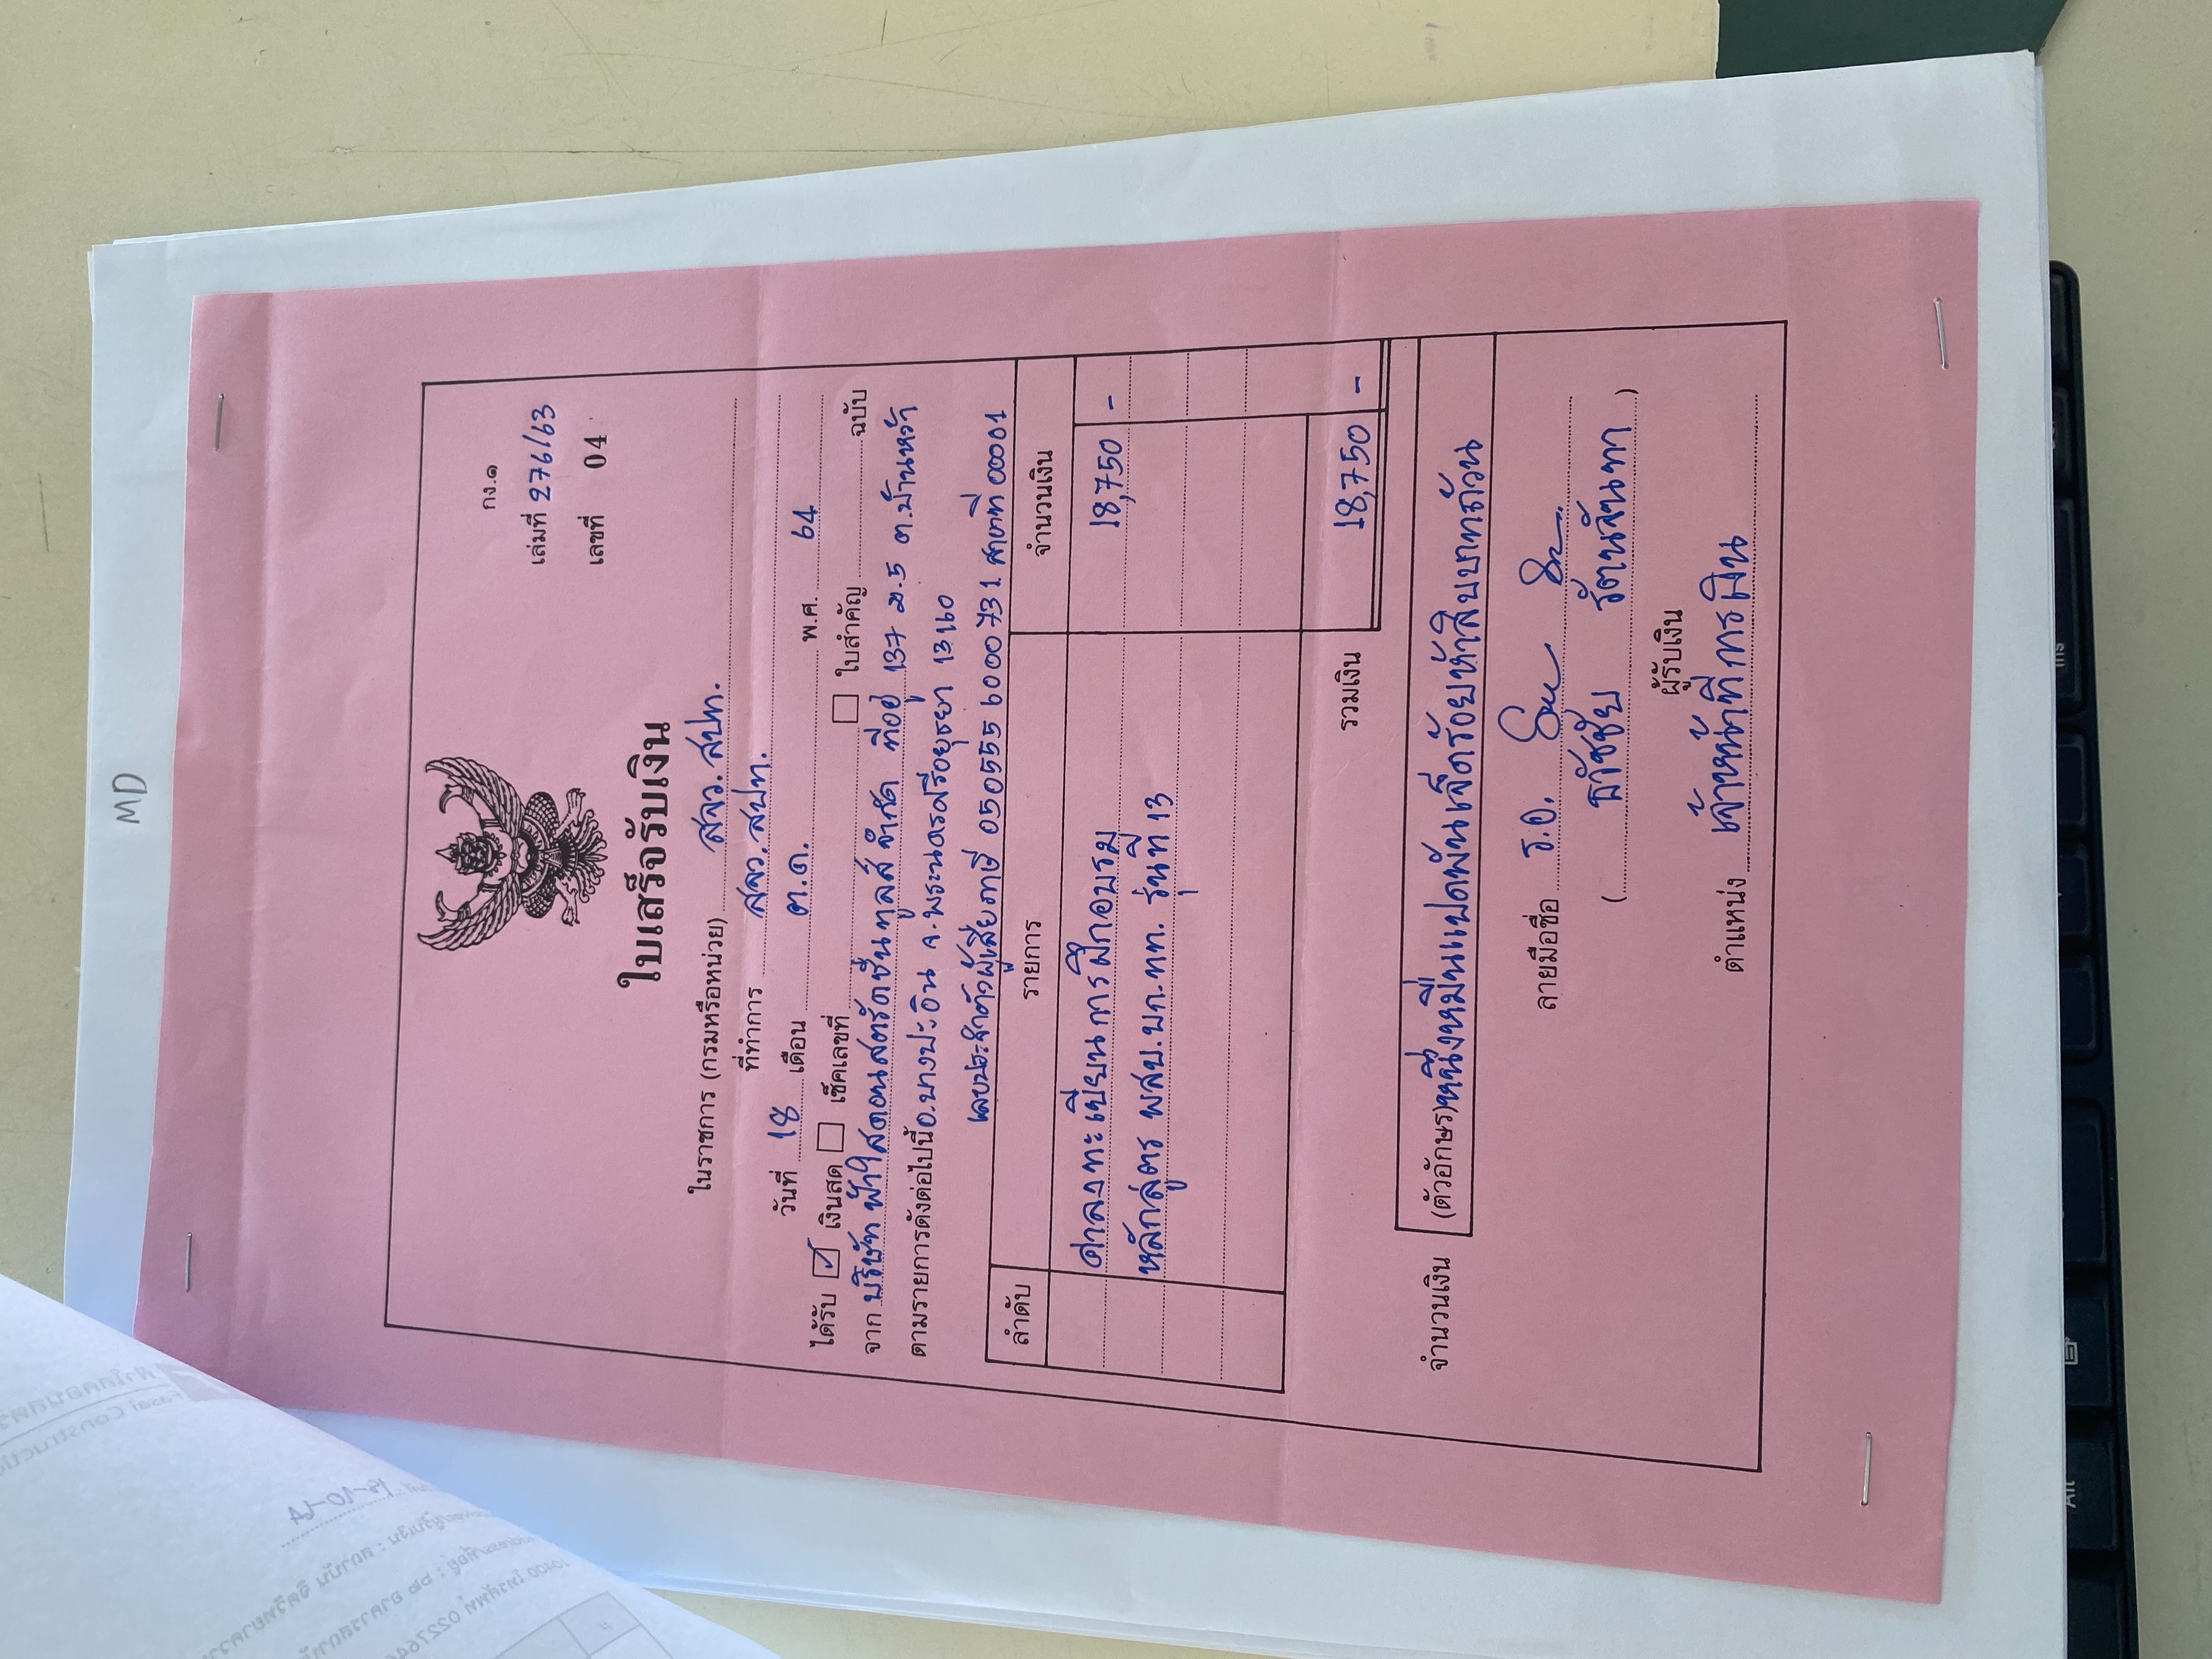 MD
กง.๑
เล่มที่ 276/63
เลขที่ 04
ใบเสร็จรับเงิน
ในราชการ (กรมหรือหน่วย) สจว. สปท.
ที่ทำการ สจว. สปท.
วันที่ 18 เดือน ต.ค. พ.ศ. 64
ได้รับ ☑ เงินสด ☐ เช็คเลขที่ ☐ ใบสำคัญ ฉบับ
จาก บริษัท ฟ้าใสคอนสตรัคชั่นทูลส์ จำกัด ที่อยู่ 137 ม.5 ต.บ้านหว้า
ตามรายการดังต่อไปนี้ อ.บางปะอิน จ.พระนครศรีอยุธยา 13160
เลขประจำตัวผู้เสียภาษี 0505556000731 สาขาที่ 00001
ลำดับ รายการ จำนวนเงิน
ค่าลงทะเบียนการฝึกอบรม 18,750 -
หลักสูตร พสบ.บก.ทท. รุ่นที่ 13
รวมเงิน 18,750 -
จำนวนเงิน (ตัวอักษร) หนึ่งหมื่นแปดพันเจ็ดร้อยห้าสิบบาทถ้วน
ลายมือชื่อ ร.อ.
( ธวัชชัย รัตนจันทา )
ผู้รับเงิน
ตำแหน่ง เจ้าหน้าที่การเงิน
Alt
Ins